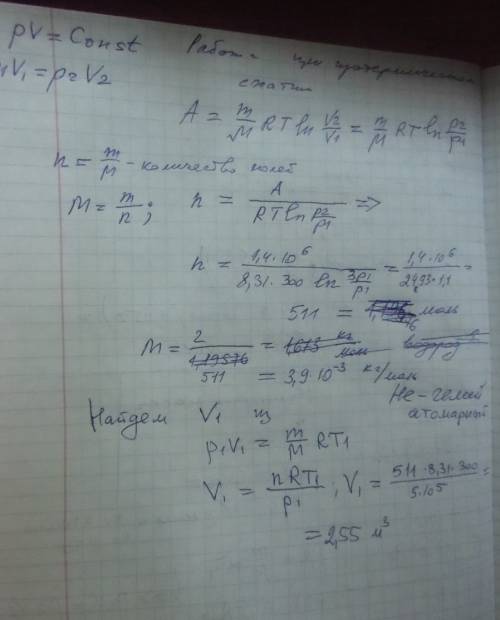 pV = Const
Работа при изотермическом
V₁ = p₂V₂
сжатии
A = m/M RT ln V₂/V₁ = m/M RT ln p₂/p₁
n = m/M - количество молей
M = m/n ; n = A / (RT ln p₂/p₁) =>
n = 1,4·10⁶ / (8,31·300 ln 3p₁/p₁) = 1,4·10⁶ / (2493·1,1) =
511 = моль
M = 2/511 = кг/моль водород
= 3,9·10⁻³ кг/моль
He - гелий
атомарный
Найдем V₁ из
p₁V₁ = m/M RT₁
V₁ = nRT₁/p₁ ; V₁ = 511·8,31·300 / 5·10⁵ =
= 2,55 м³